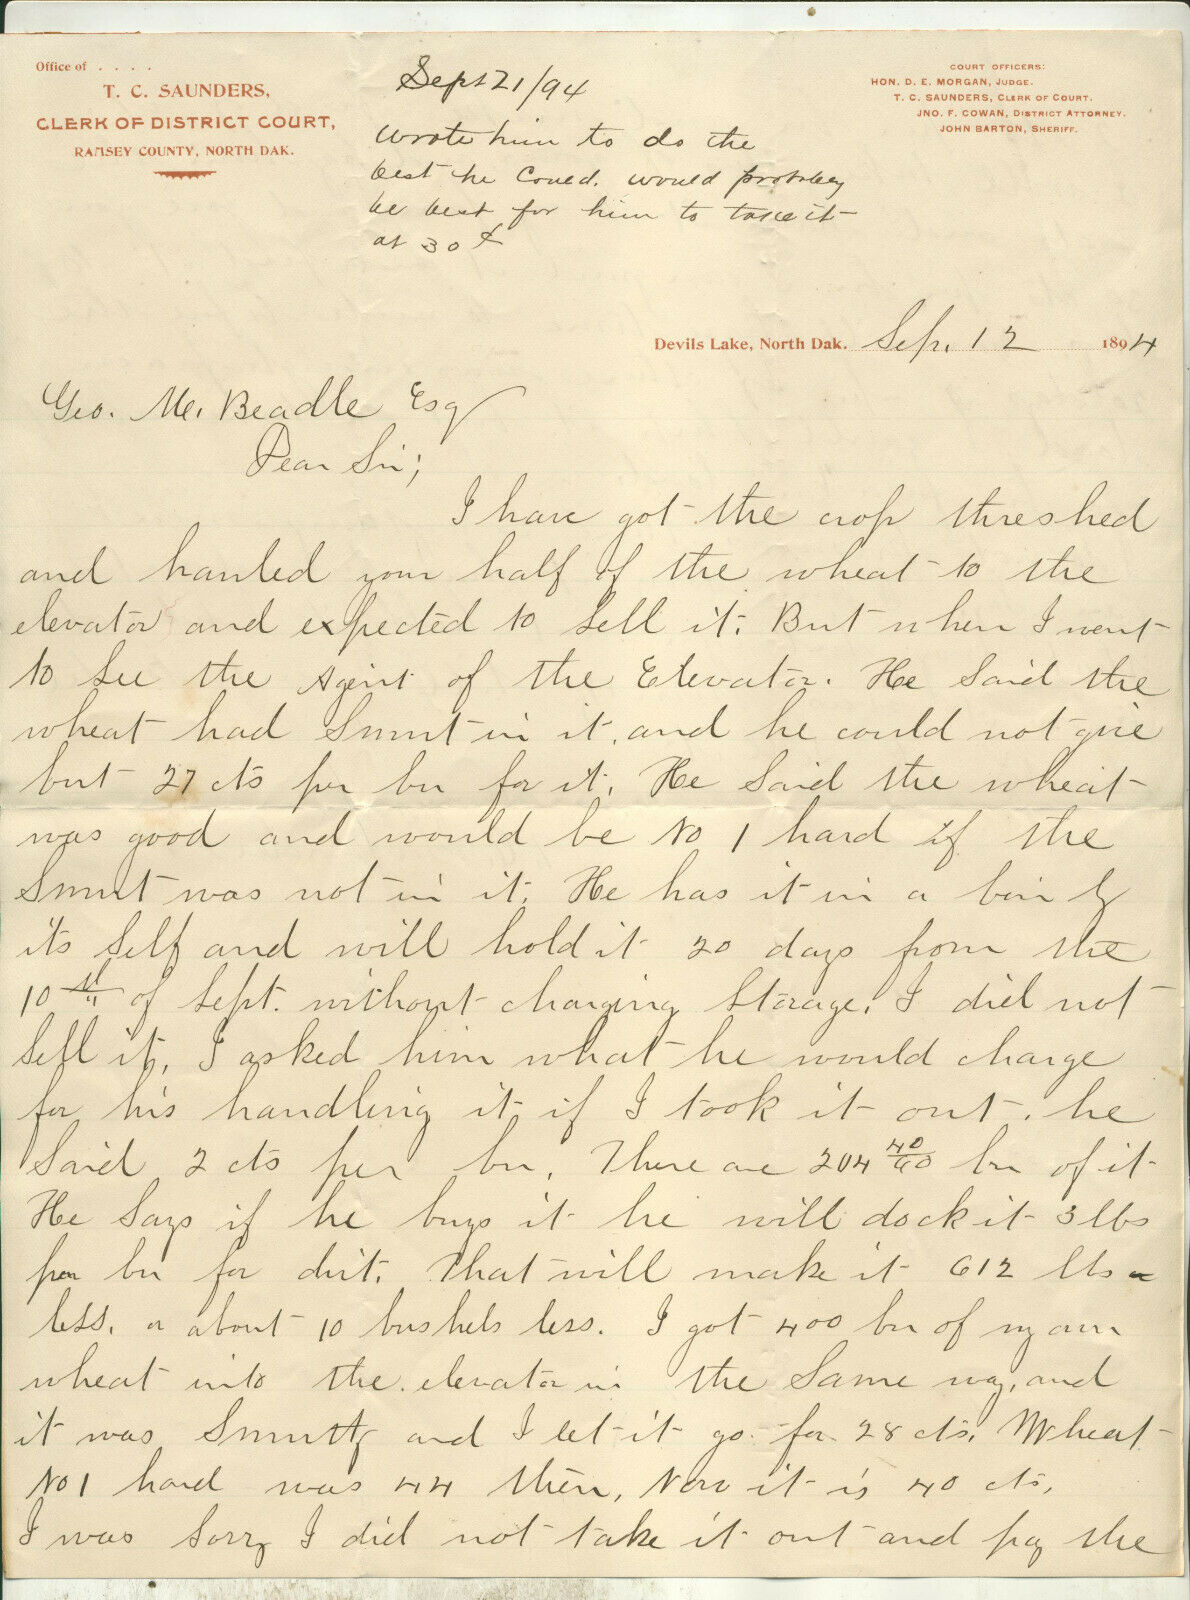 Office of . . . .
T. C. SAUNDERS,
CLERK OF DISTRICT COURT,
RAMSEY COUNTY, NORTH DAK.
Sept 21/94
wrote him to do the
best he Coued. would probbley
be best for him to take it
at 30¢
COURT OFFICERS:
HON. D. E. MORGAN, JUDGE.
T. C. SAUNDERS, CLERK OF COURT.
JNO. F. COWAN, DISTRICT ATTORNEY.
JOHN BARTON, SHERIFF.
Devils Lake, North Dak. Sep. 12 1894
Geo. M. Beadle Esq
Dear Sir;
I have got the crop threshed
and hauled your half of the wheat to the
elevator and expected to sell it. But when I went
to see the Agent of the Elevator. He said the
wheat had Smut in it, and he could not give
but 27 cts per bu for it. He said the wheat
was good and would be No 1 hard if the
Smut was not in it. He has it in a bin by
its self and will hold it 20 days from the
10th of Sept. without charging Storage. I did not
sell it. I asked him what he would charge
for his handling it if I took it out. he
Said 2 cts per bu. There are 204 40/60 bu of it
He Says if he buys it he will dock it 3 lbs
per bu for dirt. That will make it 612 lbs
less. or about 10 bushels less. I got 400 bu of my own
wheat into the elevator in the Same way, and
it was Smutty and I let it go for 28 cts. Wheat
No 1 hard was 44 then, Now it is 40 cts.
I was Sorry I did not take it out and pay the